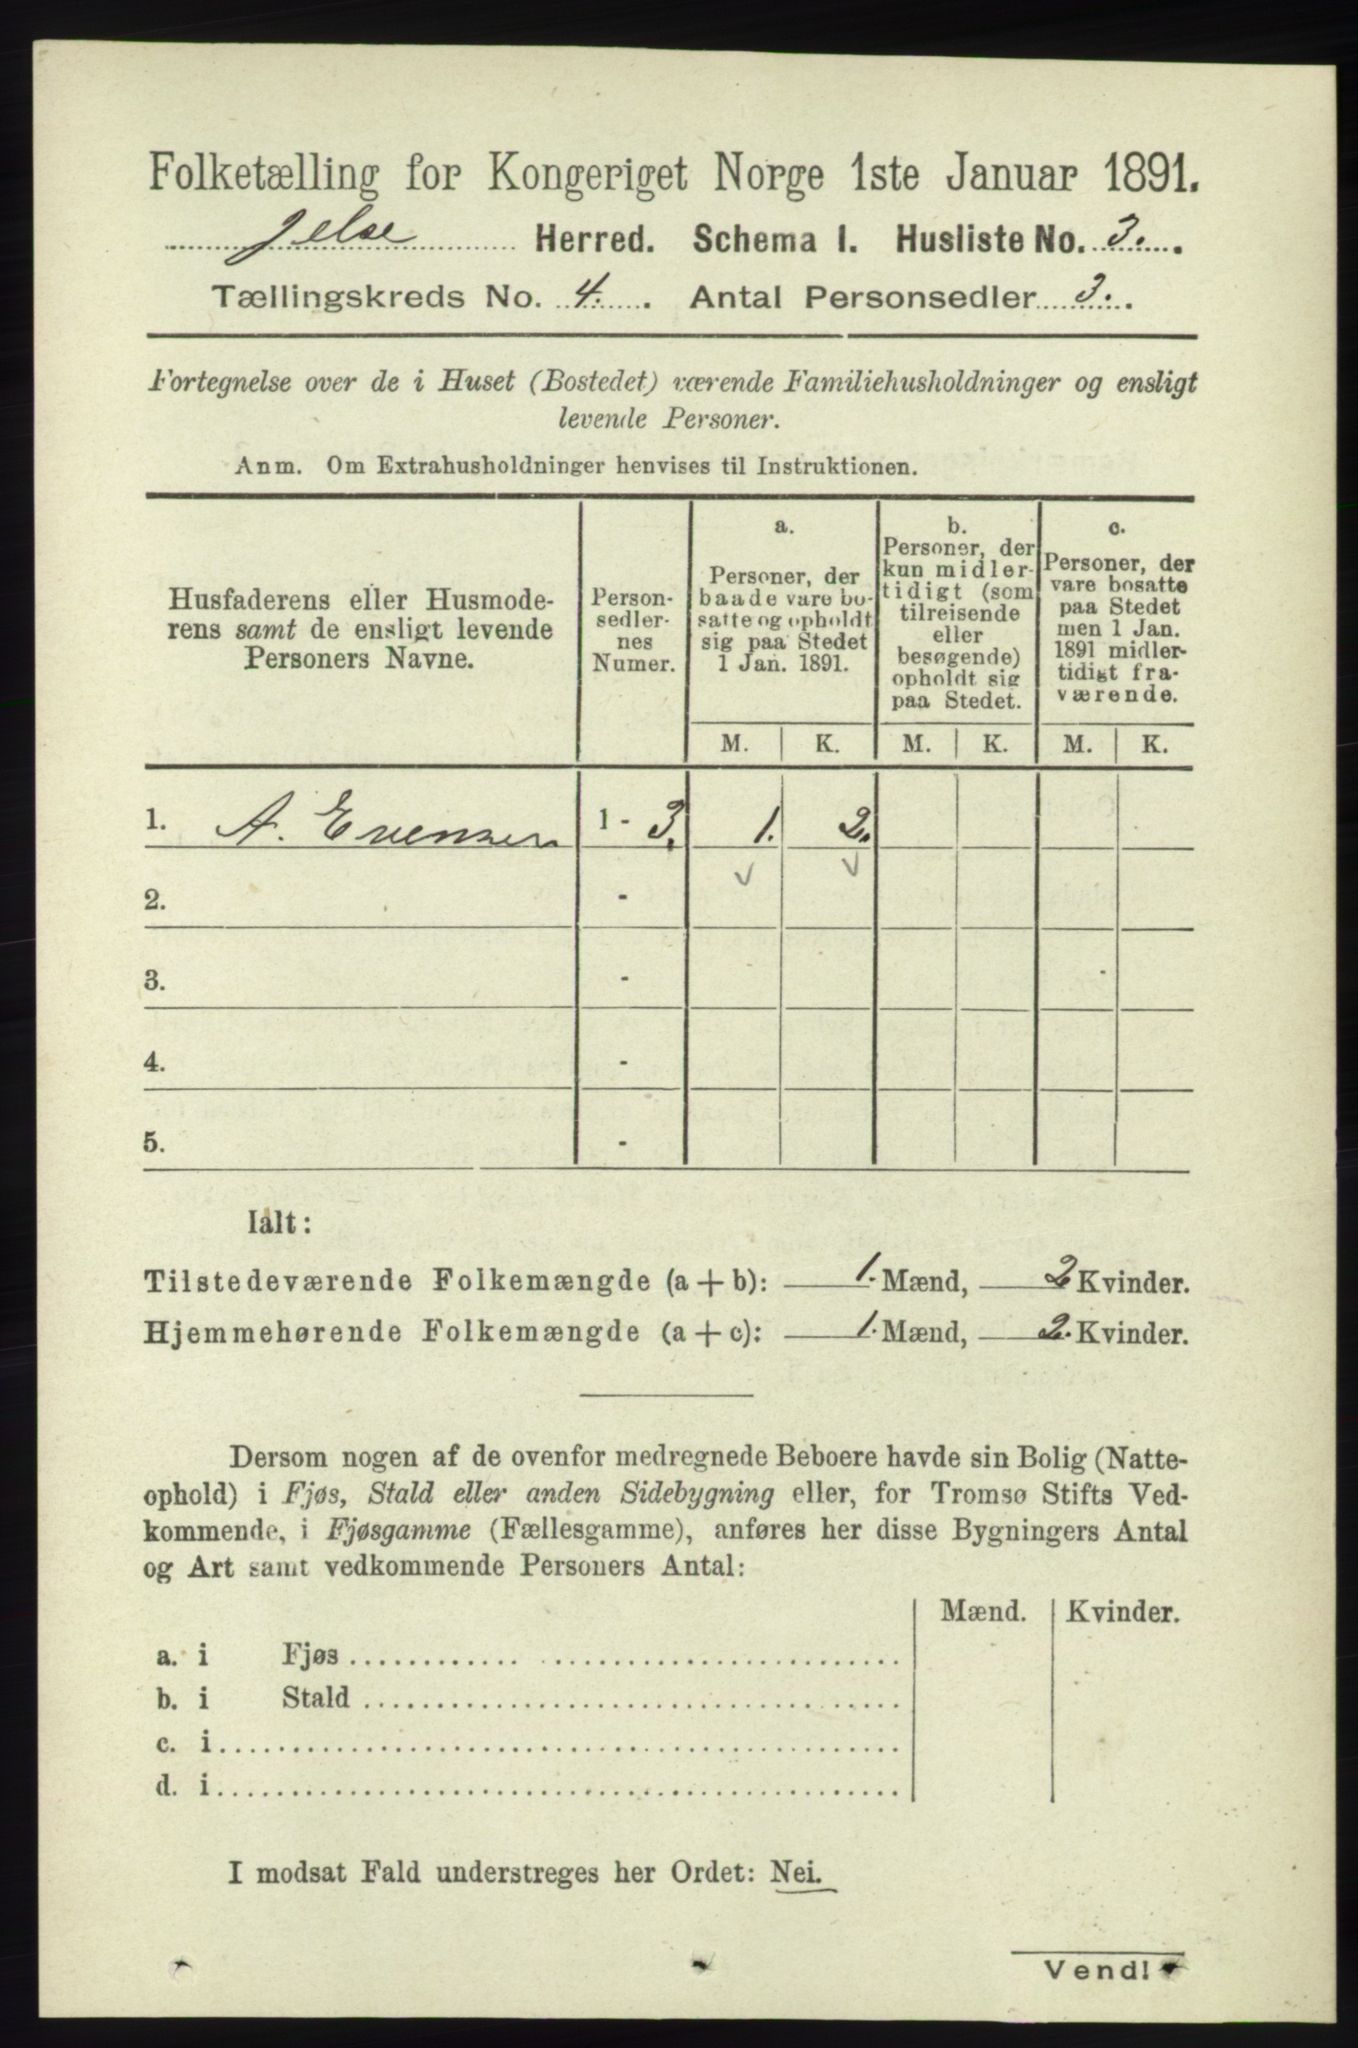 Folketælling for Kongeriget Norge 1ste Januar 1891.
Jelse Herred. Schema I. Husliste No. 3.
Tællingskreds No. 4. Antal Personsedler 3.
Fortegnelse over de i Huset (Bostedet) værende Familiehusholdninger og ensligt
levende Personer.
Anm. Om Extrahusholdninger henvises til Instruktionen.
Husfaderens eller Husmode-
rens samt de ensligt levende
Personers Navne.
Person-
sedler-
nes
Numer.
a.
Personer, der
baade vare bo-
satte og opholdt
sig paa Stedet
1 Jan. 1891.
b.
Personer, der
kun midler-
tidigt (som
tilreisende
eller
besøgende)
opholdt sig
paa Stedet.
c.
Personer, der
vare bosatte
paa Stedet
men 1 Jan.
1891 midler-
tidigt fra-
værende.
M. K. M. K. M. K.
1. A. Evensen 1 - 3. 1. 2.
2. -
3. -
4. -
5. -
Ialt:
Tilstedeværende Folkemængde (a + b): 1. Mænd, 2 Kvinder.
Hjemmehørende Folkemængde (a + c): 1. Mænd, 2. Kvinder.
Dersom nogen af de ovenfor medregnede Beboere havde sin Bolig (Natte-
ophold) i Fjøs, Stald eller anden Sidebygning eller, for Tromsø Stifts Ved-
kommende, i Fjøsgamme (Fællesgamme), anføres her disse Bygningers Antal
og Art samt vedkommende Personers Antal:
Mænd. Kvinder.
a. i Fjøs
b. i Stald
c. i
d. i
I modsat Fald understreges her Ordet: Nei.
Vend!